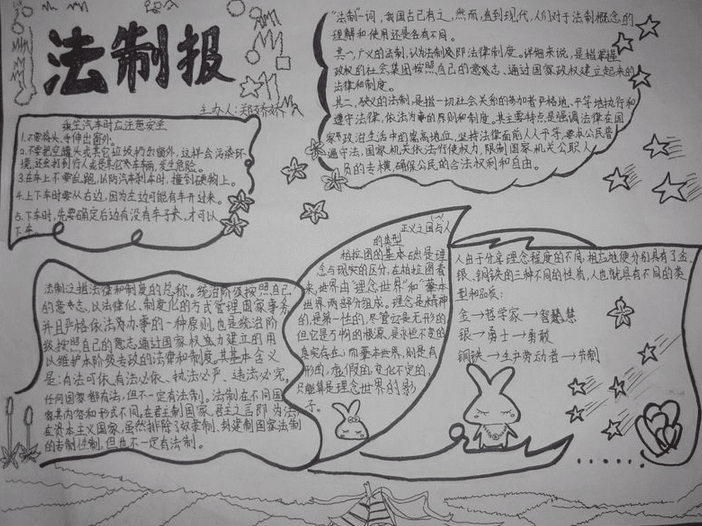 法制报
主办人:郑娇娇
乘坐汽车时应注意安全
1.不要将头、手伸出窗外。
2.不要把空罐头或其它垃圾扔出窗外,这样会污染环
境,还会打到行人或是其它汽车车辆,发生危险。
3.在车上不要乱跑,以防汽车刹车时,撞到硬物上。
4.上下车时要从右边,因为左边可能有车开过来。
5.下车时,先要确定后边有没有车子来,才可以
下车。
“法制”一词,我国古已有之。然而,直到现代,人们对于法制概念的
理解和使用还是各有不同。
其一,广义的法制,认为法制即法律制度。详细来说,是指掌握
政权的社会集团按照自己的意志,通过国家政权建立起来的
法律和制度。
其二,狭义的法制,是指一切社会关系的参加者严格地、平等地执行和
遵守法律,依法办事的原则和制度。其主要特点是强调法律在国
家政治生活中的崇高地位,坚持法律面前人人平等,要求公民普
遍守法,国家机关依法行使权力,限制国家机关公职人
员的专横,确保公民的合法权利和自由。
法制泛指法律和制度的总称。统治阶级按照自己
的意志,以法律化、制度化的方式管理国家事务,
并且严格依法办事的一种原则,也是统治阶
级按照自己的意志通过国家权力建立的用
以维护本阶级专政的法律和制度,其基本含义
是:有法可依、有法必依、执法必严、违法必究,
任何国家都有法,但不一定有法制。法制在不同国
家其内容和形式不同。在君主制国家,君主之言即为法,
在资本主义国家,虽然排除了奴隶制、封建制国家法制
的专制性制,但也不一定有法制。
正义之国与人
的类型
柏拉图的基本立场是理
念与现实的区分,在柏拉图看
来,世界由“理念世界”和“基本
世界”两部分组成。理念是精神
的,是第一性的,尽管它是无形的
但它是万物的根源,是永恒不变的
真实存在;而基本世界,则是有
形的,虚假的,变化不定的,
只能算是理念世界的影
子。
人由于分享理念程度的不同,相应地便分别具有了金、
银、铜铁的三种不同的性质,人也就具有不同的类
型和品质:
金→哲学家→智慧
银→勇士→勇敢
铜铁→生产劳动者→节制